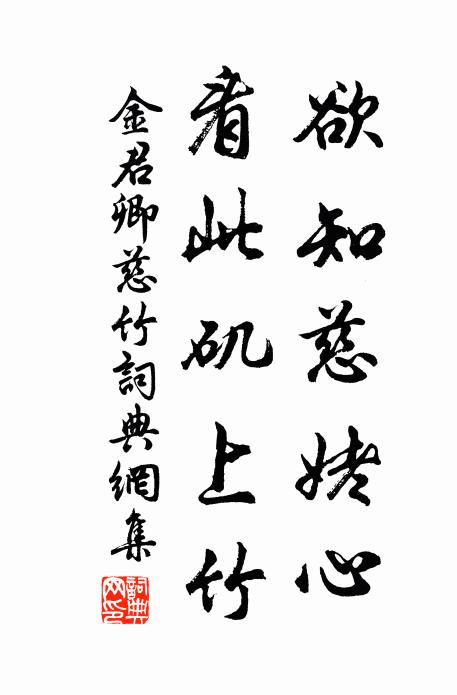 欲知慈姥心
看此矶上竹
金君卿慈竹詞典網集
詞典網印